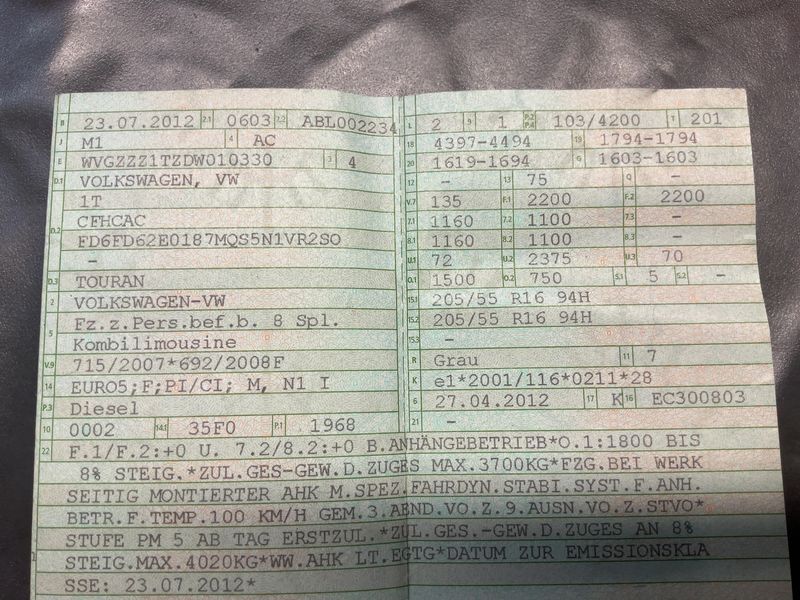 B 23.07.2012 2.1 0603 2.2 ABL002234
J M1 4 AC
E WVGZZZ1TZDW010330 3 4
D.1 VOLKSWAGEN, VW
1T
D.2 CFHCAC
FD6FD62E0187MQS5N1VR2SO
-
D.3 TOURAN
2 VOLKSWAGEN-VW
5 Fz.z.Pers.bef.b. 8 Spl.
Kombilimousine
V.9 715/2007*692/2008F
14 EURO5;F;PI/CI; M, N1 I
P.3 Diesel
10 0002 14.1 35F0 P.1 1968
L 2 9 1 P.2 P.4 103/4200 T 201
18 4397-4494 19 1794-1794
20 1619-1694 G 1603-1603
12 - 13 75 Q -
V.7 135 F.1 2200 F.2 2200
7.1 1160 7.2 1100 7.3 -
8.1 1160 8.2 1100 8.3 -
U.1 72 U.2 2375 U.3 70
O.1 1500 O.2 750 S.1 5 S.2 -
15.1 205/55 R16 94H
15.2 205/55 R16 94H
15.3 -
R Grau 11 7
K e1*2001/116*0211*28
6 27.04.2012 17 K 16 EC300803
21 -
22 F.1/F.2:+0 U. 7.2/8.2:+0 B.ANHÄNGEBETRIEB*O.1:1800 BIS
8% STEIG.*ZUL.GES-GEW.D.ZUGES MAX.3700KG*FZG.BEI WERK
SEITIG MONTIERTER AHK M.SPEZ.FAHRDYN.STABI.SYST.F.ANH.
BETR.F.TEMP.100 KM/H GEM.3.AEND.VO.Z.9.AUSN.VO.Z.STVO*
STUFE PM 5 AB TAG ERSTZUL.*ZUL.GES.-GEW.D.ZUGES AN 8%
STEIG.MAX.4020KG*WW.AHK LT.EGTG*DATUM ZUR EMISSIONSKLA
SSE: 23.07.2012*